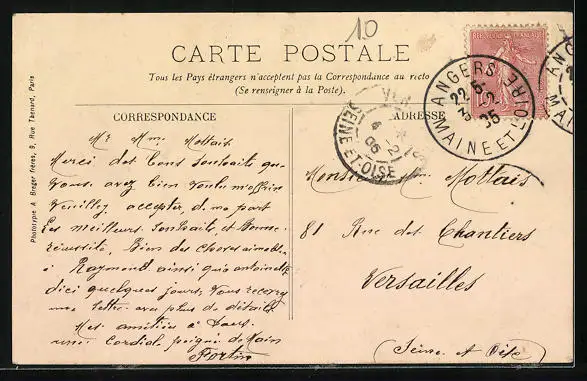 10
CARTE POSTALE
Tous les Pays étrangers n'acceptent pas la Correspondance au recto
(Se renseigner à la Poste).
CORRESPONDANCE
Mr Mme Mottais
Merci des bons souhaits que
vous avez bien voulu m'offrir
Veuillez accepter de ma part
les meilleurs souhaits et bonne
réussite, Bien des choses aimables
à Raymond ainsi qu'à antoinette
dici quelques jours, vous recevrez
une lettre avec plus de détails
Mes amitiés à tous
une Cordiale poignée de Main
Fortin
Phototypie A. Breger frères, 9, Rue Thénard, Paris
ADRESSE
Monsieur Mottais
81 Rue des Chantiers
Versailles
(Seine et Oise)
ANGERS
MAINE ET LOIRE
SEINE ET OISE